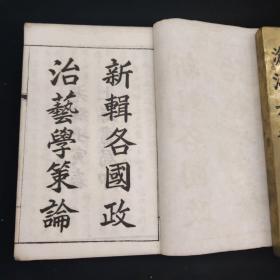 新輯各國政
治藝學策論